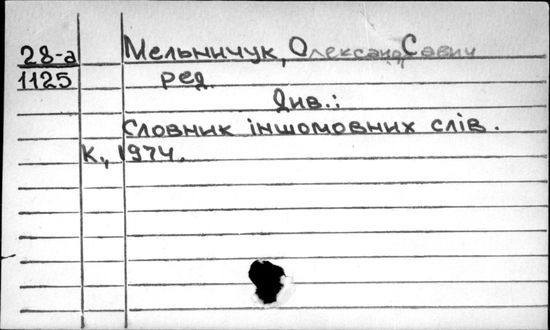 28-а Мельничук, Олександр Савич
1125 ред.
Див.:
Словник іншомовних слів.
К., 1974.